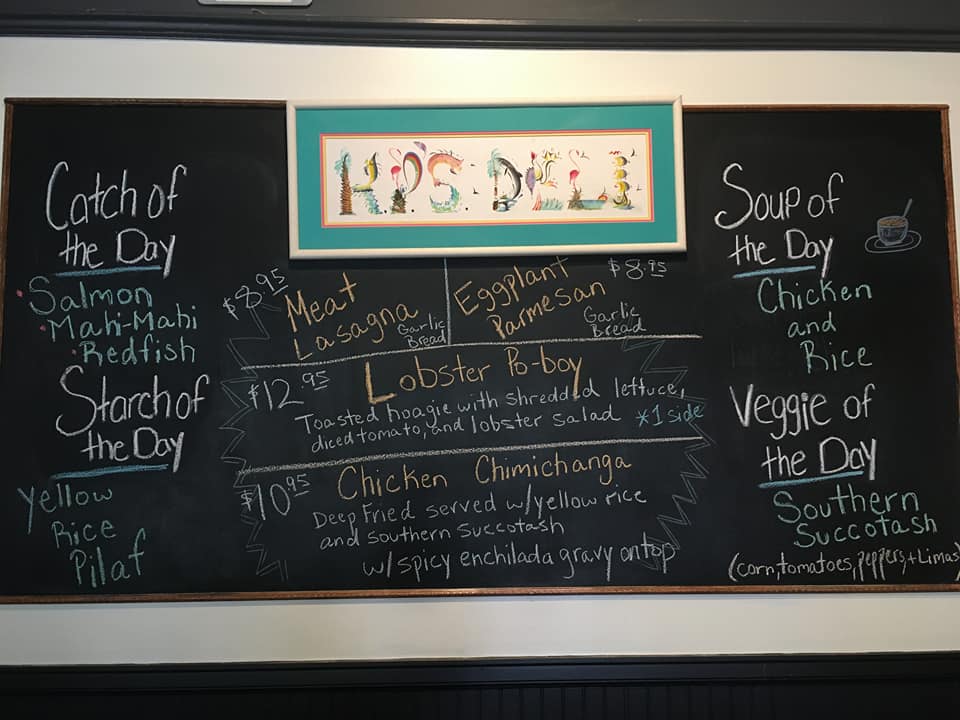 H.P.'S. DELI
Catch of
the Day
Salmon
Mahi-Mahi
Redfish
Starch of
the Day
Yellow
Rice
Pilaf
$8.95
Meat
Lasagna
Garlic
Bread
Eggplant
Parmesan
$8.95
Garlic
Bread
$12.95
Lobster Po-boy
Toasted hoagie with shredded lettuce,
diced tomato, and lobster salad *1 side
$10.95
Chicken Chimichanga
Deep Fried served w/yellow rice
and southern succotash
w/spicy enchilada gravy on top
Soup of
the Day
Chicken
and
Rice
Veggie of
the Day
Southern
Succotash
(corn, tomatoes, peppers, + Limas)